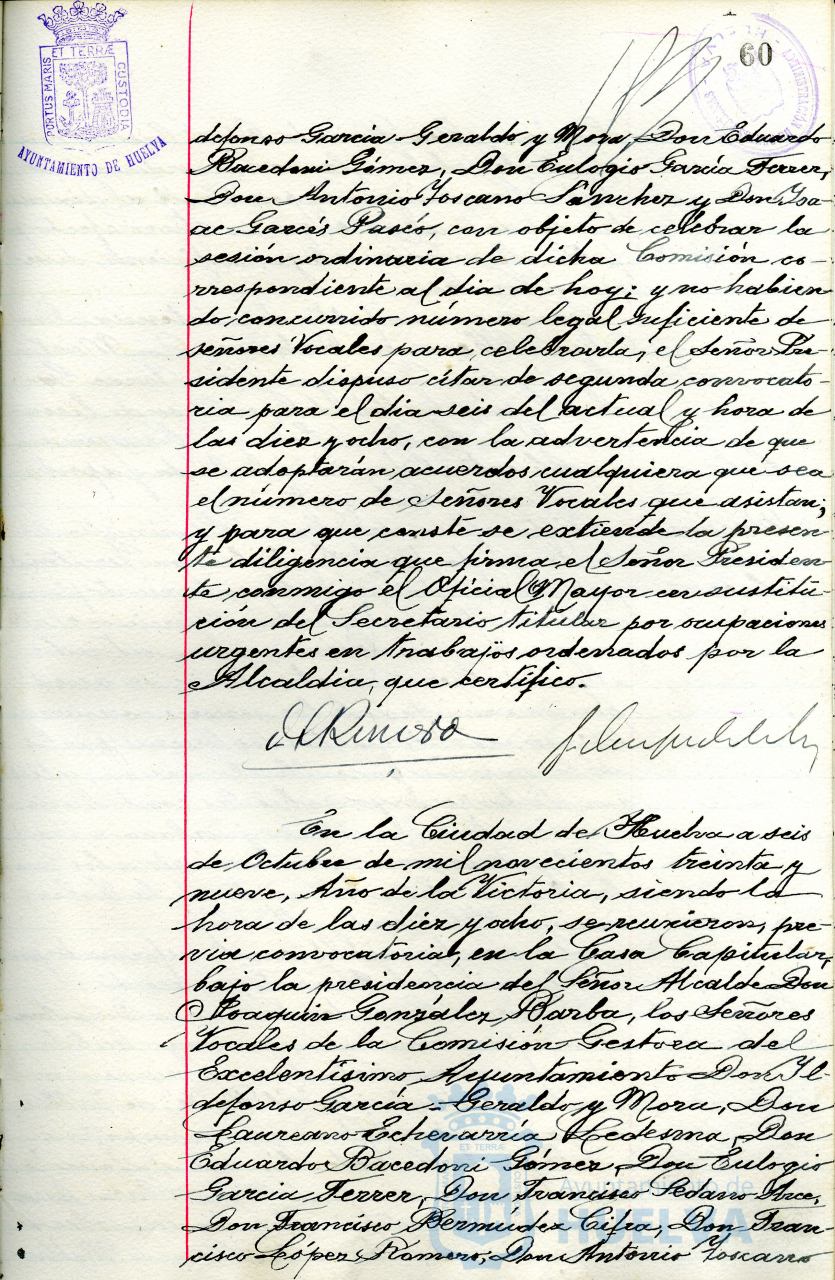 PORTUS MARIS ET TERRÆ CUSTODIA
AYUNTAMIENTO DE HUELVA
60
defonso García Geraldo y Mora, Don Eduardo
Bacedoni Gómez, Don Eulogio García Ferrer,
Don Antonio Toscano Sánchez y Don Isa-
ac Garcés Pascó, con objeto de celebrar la
sesión ordinaria de dicha Comisión co-
rrespondiente al dia de hoy; y no habien
do concurrido número legal suficiente de
señores Vocales para celebrarla, el Señor Pre-
sidente dispuso citar de segunda convocato-
ria para el dia seis del actual y hora de
las diez y ocho, con la advertencia de que
se adoptarán acuerdos cualquiera que sea
el número de Señores Vocales que asistan;
y para que conste se extiende la presen-
te diligencia que firma el Señor Presiden
te conmigo el Oficial Mayor en sustitu-
ción del Secretario titular por ocupaciones
urgentes en trabajos ordenados por la
Alcaldia, que certifico.
En la Ciudad de Huelva a seis
de Octubre de mil novecientos treinta y
nueve, Año de la Victoria, siendo la
hora de las diez y ocho, se reunieron, pre-
via convocatoria, en la Casa Capitular,
bajo la presidencia del Señor Alcalde Don
Joaquin González Barba, los Señores
Vocales de la Comisión Gestora del
Excelentísimo Ayuntamiento Don Il-
defonso García-Geraldo y Mora, Don
Laureano Echevarría Ledesma, Don
Eduardo Bacedoni Gómez, Don Eulogio
Garcia Ferrer, Don Francisco Sedano Arce,
Don Francisco Bermúdez Cifra, Don Fran-
cisco López Romero, Don Antonio Toscano
ET TERRÆ
Ayuntamiento de
HUELVA